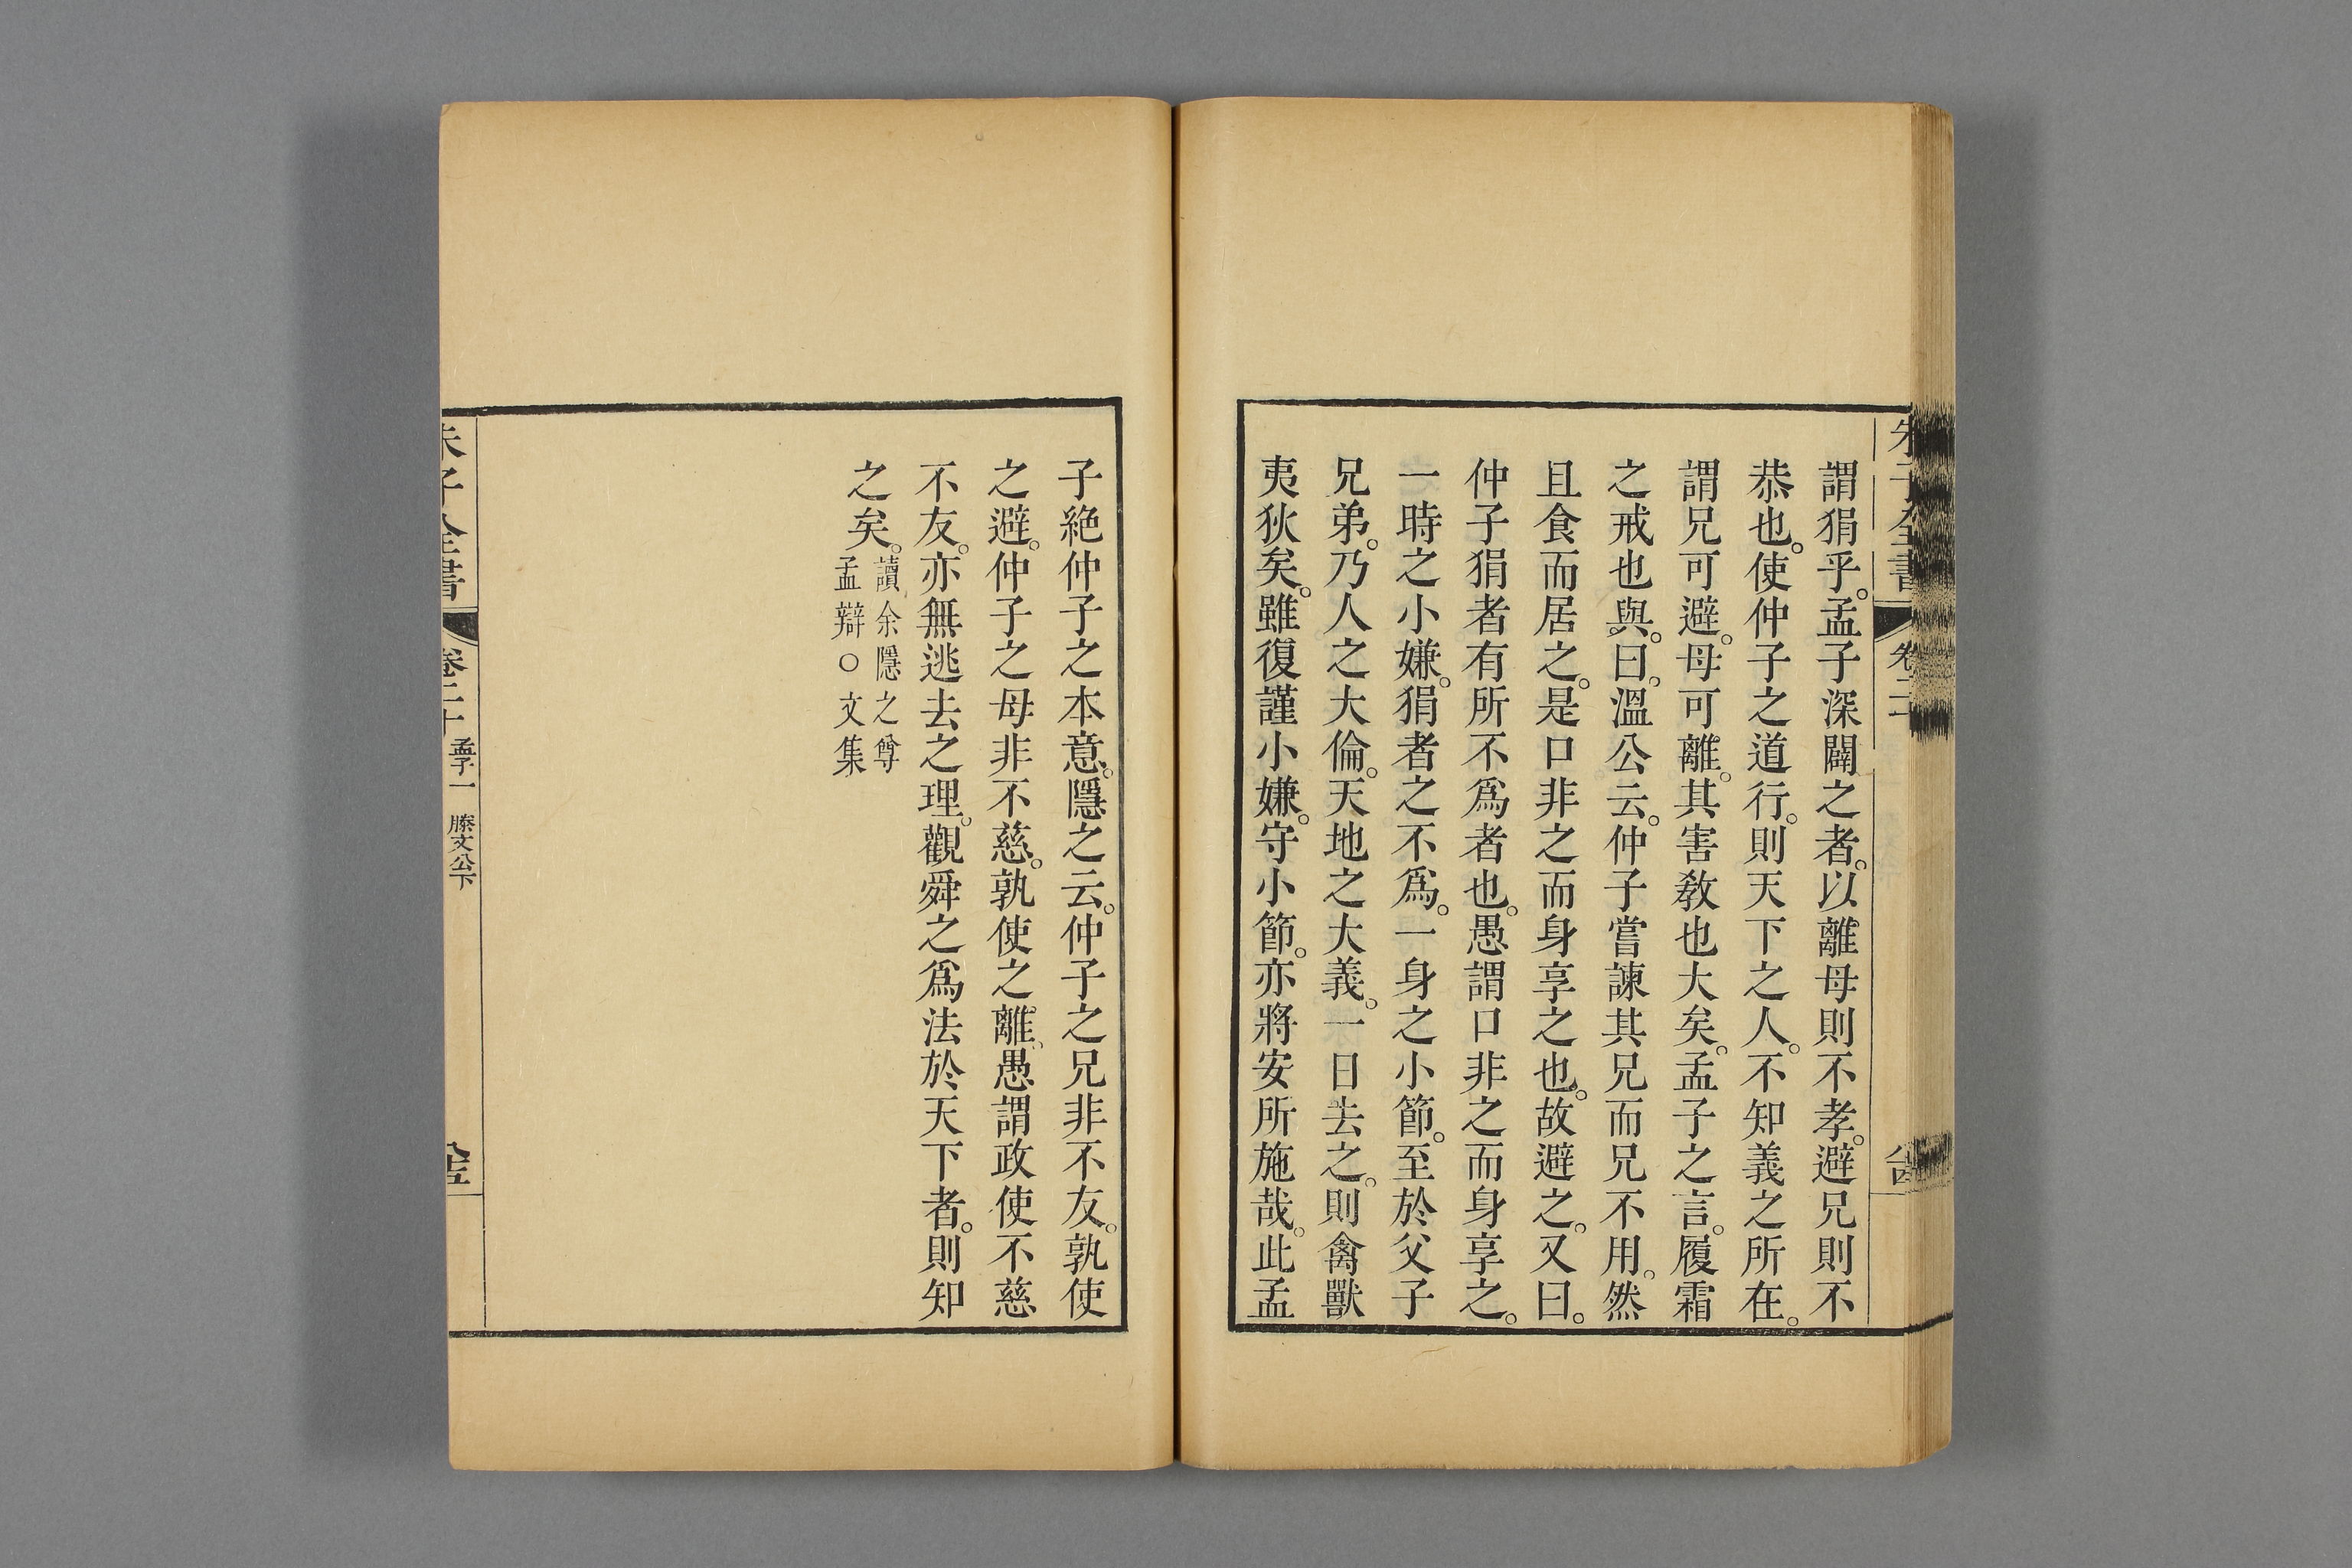 謂狷乎。孟子深闢之者。以離母則不孝。避兄則不
恭也。使仲子之道行。則天下之人。不知義之所在。
謂兄可避。母可離。其害敎也大矣。孟子之言。履霜
之戒也與。曰。溫公云。仲子嘗諫其兄而兄不用。然
且食而居之。是口非之而身享之也。故避之。又曰。
仲子狷者有所不爲者也。愚謂口非之而身享之。
一時之小嫌。狷者之不爲。一身之小節。至於父子
兄弟。乃人之大倫。天地之大義。一日去之。則禽獸
夷狄矣。雖復謹小嫌。守小節。亦將安所施哉。此孟
子絶仲子之本意。隱之云。仲子之兄非不友。孰使
之避。仲子之母非不慈。孰使之離。愚謂政使不慈
不友。亦無逃去之理。觀舜之爲法於天下者。則知
之矣。讀余隱之尊
孟辯○文集
朱子全書
卷二十
孟子一 滕文公下